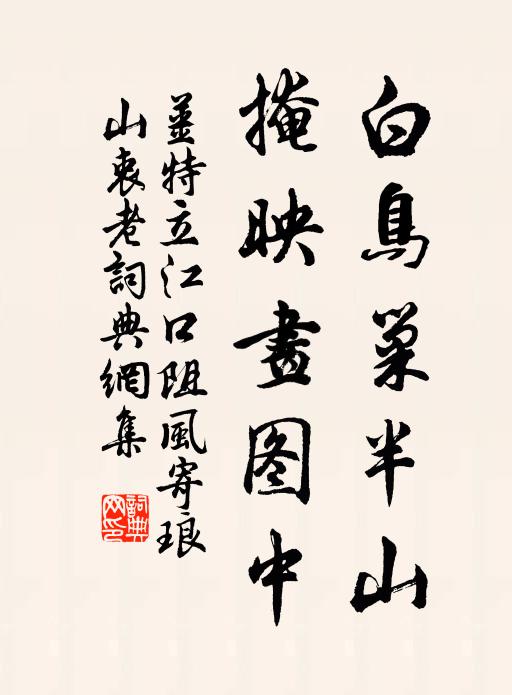 白鳥巢半山
掩映畫图中
薑特立江口阻風寄琅
山衷老詞典網集
詞典网印